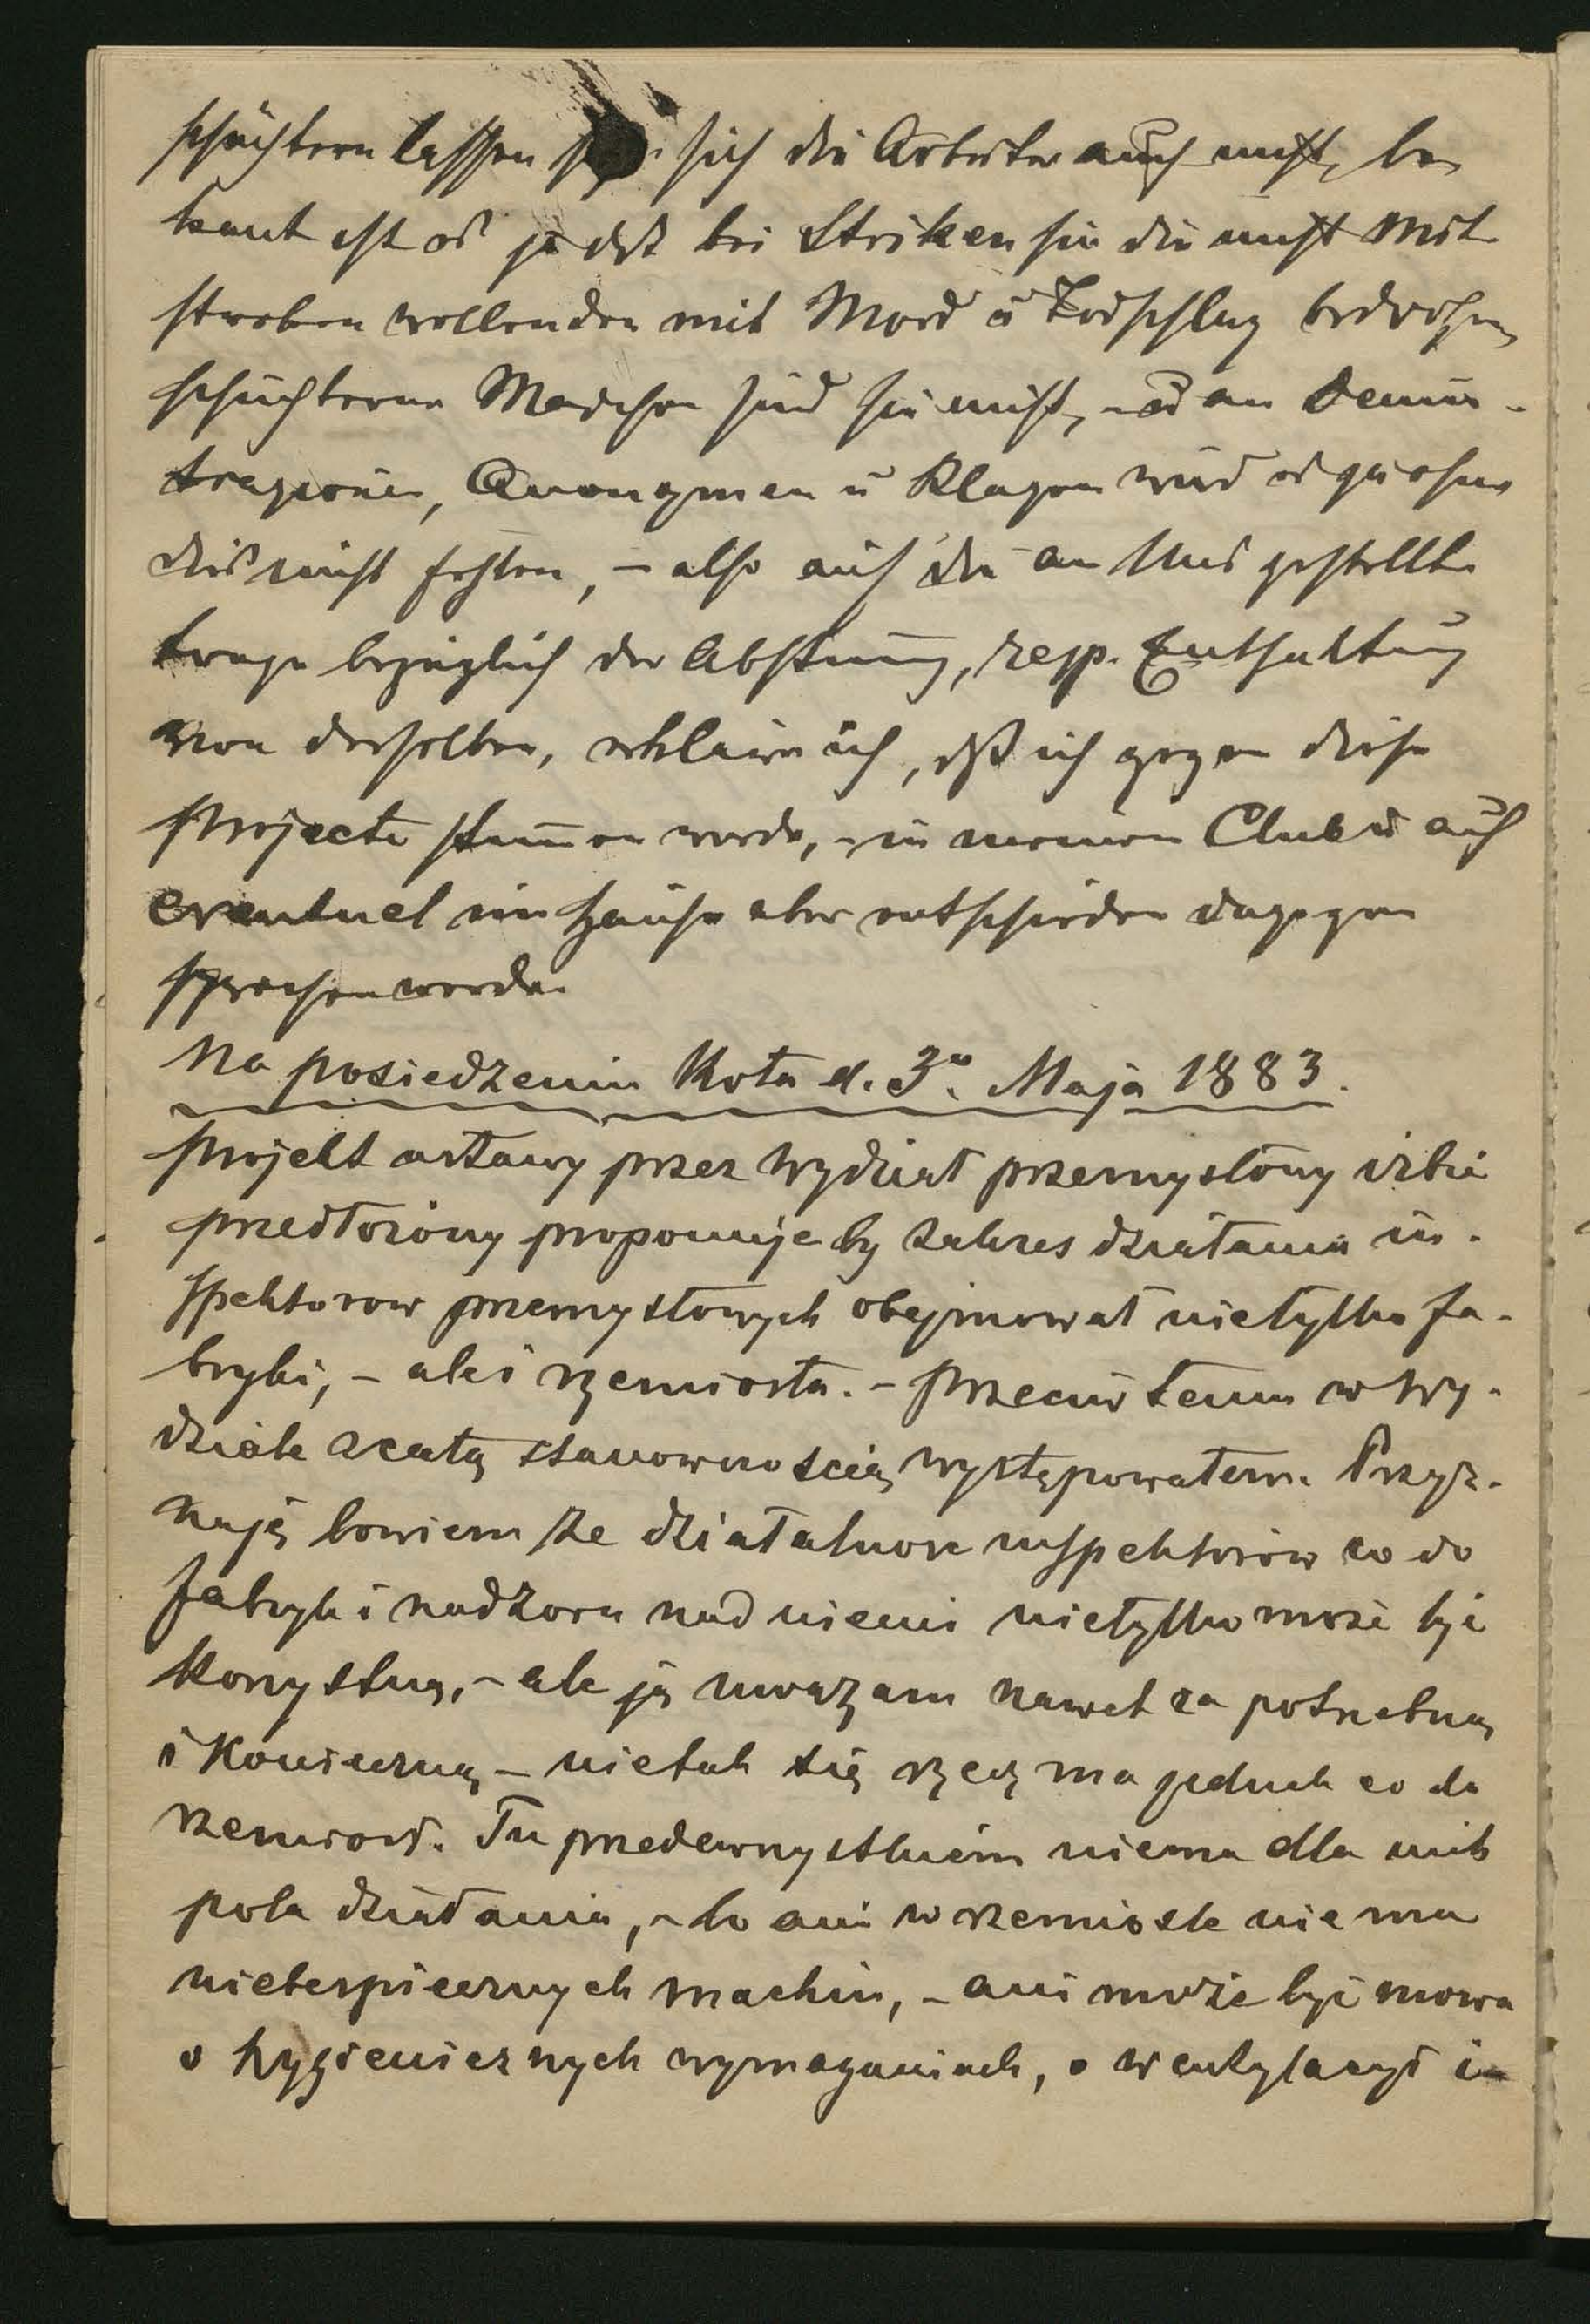 schüchtern lassen sich die Arbeiter auch nicht, be
kant ist es ja daß bei Striken sie die nicht Mit
streben wollenden mit Mord u Todschlag bedrohen,
schüchterne Madchen sind sie nicht, – u an Denun-
trazionen, Anonymen u Klagen wird es gar ohne
dies nicht fehlen, – also auf die an Uns gestellte
Frage bezüglich der Abstimung, resp. Enthaltung
von derselben, erkläre ich, daß ich gegen diese
Projecte stimen werde, – in meinem Club u auch
eventuel im Hause aber entschieden dagegen
sprechen werde.
Na posiedzeniu Koła d. 3go Maja 1883.
Projekt ustawy przez wydział przemysłowy izbie
przedłożony proponuje by zakres działania in-
spektorow przemysłowych obejmował nietylko fa-
bryki, – ale i rzemiosła. – Przeciw temu w wy-
dziale z całą stanowczością występowałem. Przyz-
naję bowiem że działalnosc inspektorów co do
fabryk i nadzoru nad niemi nietylko może być
korzystną, – ale ją uważam nawet za potrzebną
i konieczną – nietak się rzecz ma jednak co do
rzemiosł. Tu przedewszystkiem niema dla nich
pola działania, – bo ani w rzemiośle nie ma
niebezpiecznych machin, – ani może być mowa
o hygienicznych wymaganiach, o wentylacyi i